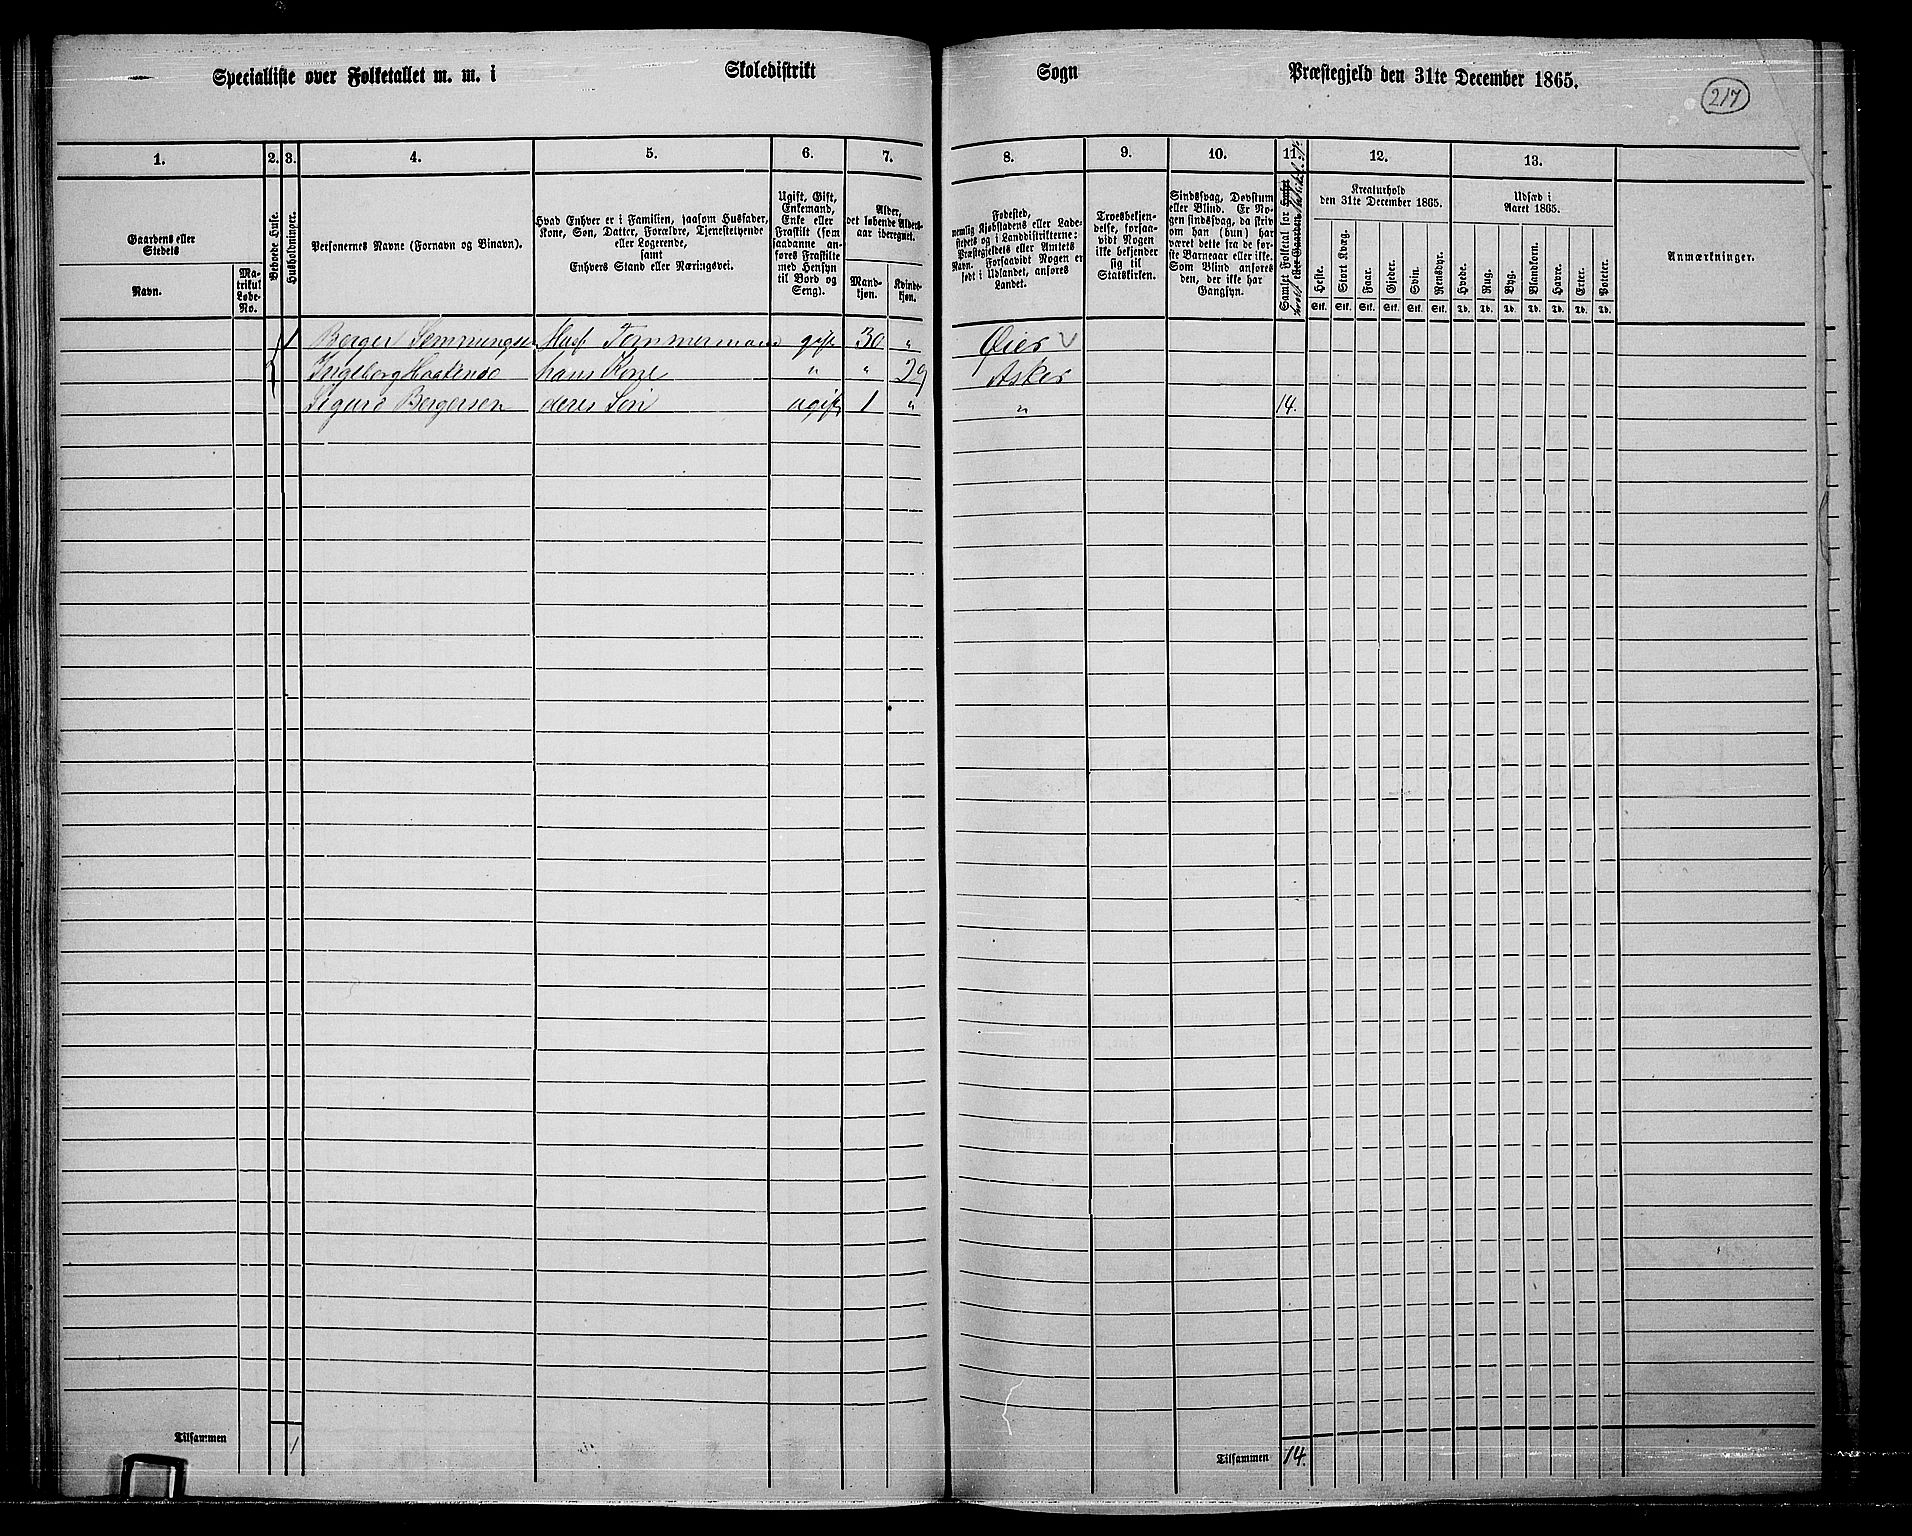 Specialliste over Folketallet m. m. i Skoledistrikt Sogn Præstegjeld den 31te December 1865.
217
1. 2. 3. 4. 5. 6. 7. 8. 9. 10. 11. 12. 13.
Gaardens eller Stedets
Navn.
Matrikul Løbe-No.
Beboede Huse.
Husholdninger.
Personernes Navne (Fornavn og Binavn).
Hvad Enhver er i Familien, saasom Husfader,
Kone, Søn, Datter, Forældre, Tjenestetyende
eller Logerende,
samt
Enhvers Stand eller Næringsvei.
Ugift, Gift,
Enkemand,
Enke eller
Fraskilt (som
saadanne an-
føres Fraskilte
med Hensyn
til Bord og
Seng).
Alder,
det løbende Alders-
aar iberegnet.
Mand-
kjøn.
Kvinde-
kjøn.
Fødested,
nemlig Kjøbstadens eller Lade-
stedets og i Landdistrikterne:
Præstegjeldets eller Amtets
Navn. Forsaavidt Nogen er
født i Udlandet, anføres
Landet.
Troesbekjen-
delse, forsaa-
vidt Nogen
ikke bekjender
sig til
Statskirken.
Sindssvag, Døvstum
eller Blind. Er No-
gen sindssvag, da skriv
om han (hun) har
været dette fra de før-
ste Barneaar eller ikke.
Som Blind anføres
den, der ikke har
Gangsyn.
Samlet Folketal for
Kreaturhold
den 31te December 1865.
Heste. Stort Kvæg. Faar. Gjeder. Svin. Rensdyr.
Stk. Stk. Stk. Stk. Stk. Stk.
Udsæd i
Aaret 1865.
Hvede. Rug. Byg. Blandkorn. Havre. Erter. Poteter.
Td. Td. Td. Td. Td. Td. Td.
Anmærkninger.
1 Berger Semmingsen Husf. Tømmermand gift 30 " Øier
Ingeborg Haakensd hans Kone " " 29 Asker
Sigurd Bergersen deres Søn ugift 1 " " 14.
Tilsammen 1 Tilsammen 14.